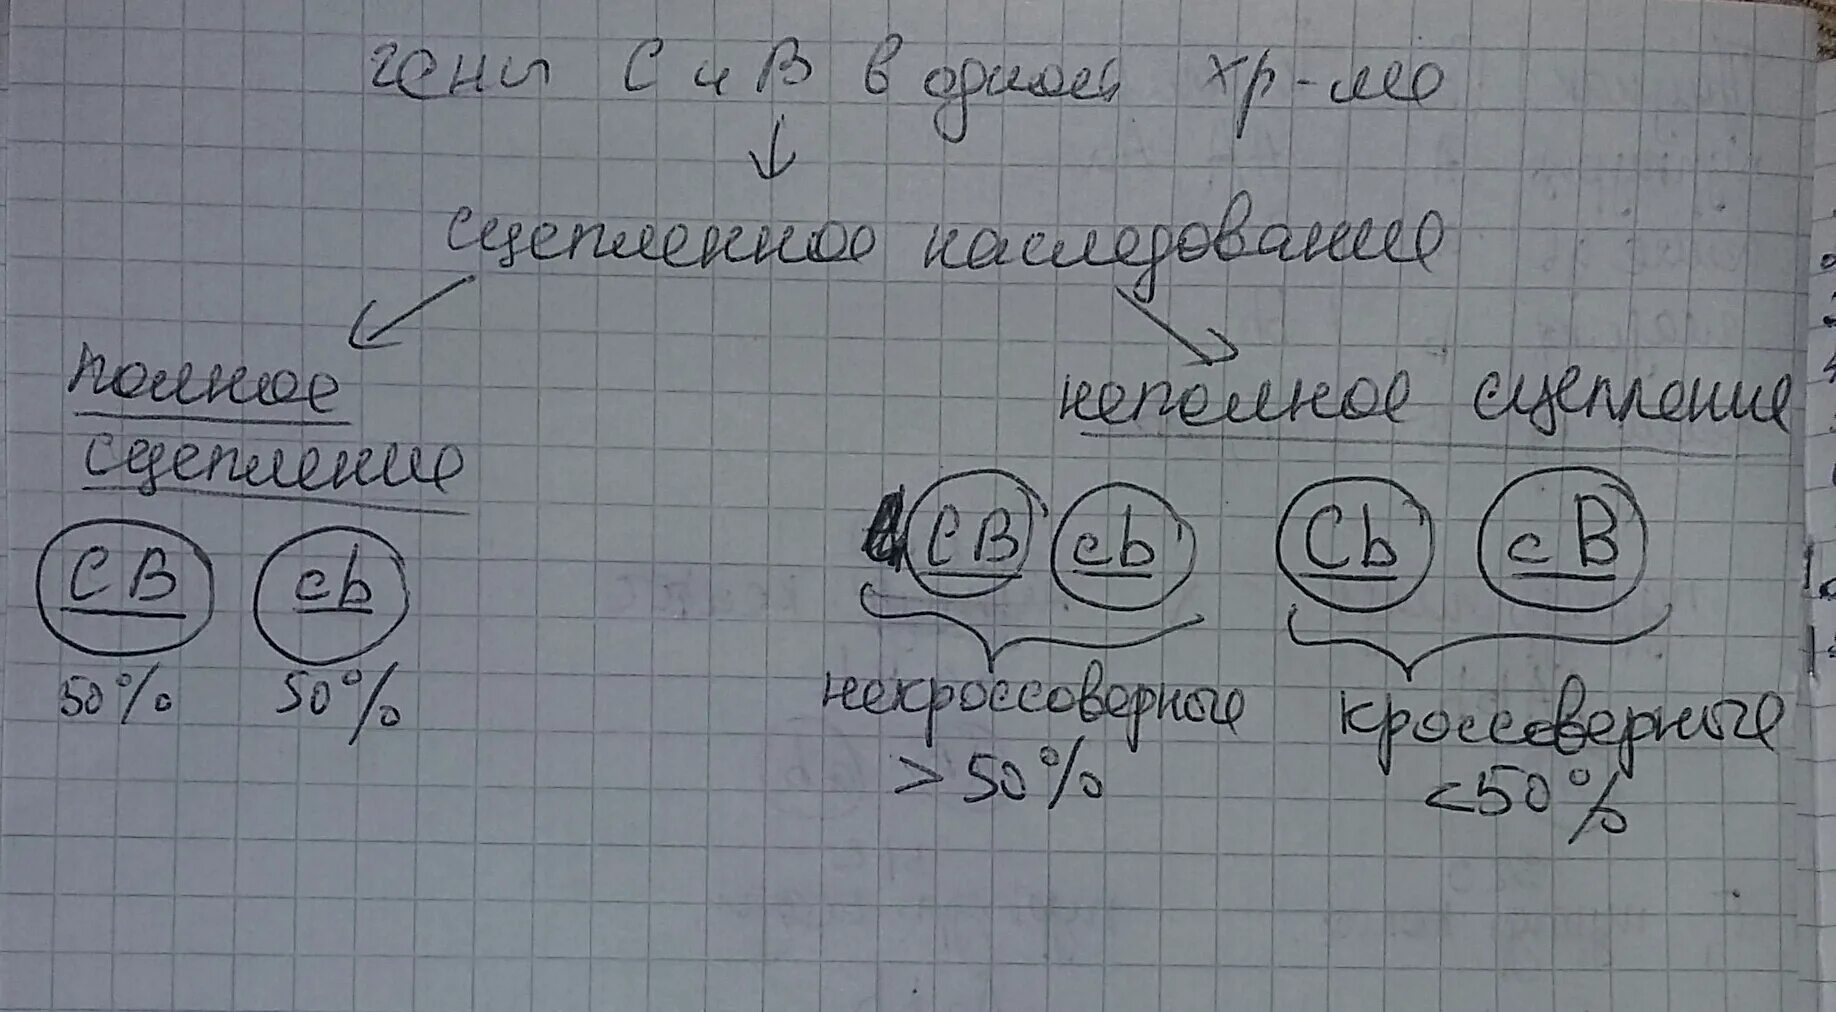 гены С и В в одной хр-ме
сцепленное наследование
полное
сцепление
СВ cb
50% 50%
неполное сцепление
СВ cb Cb cB
некроссоверные кроссоверные
>50% <50%